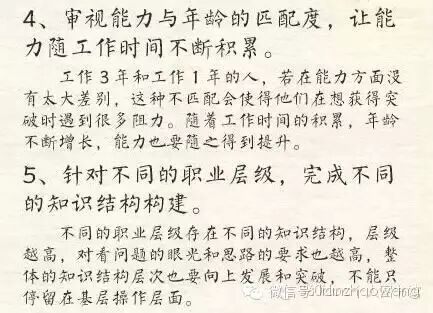 4、审视能力与年龄的匹配度，让能
力随工作时间不断积累。
工作3年和工作1年的人，若在能力方面没
有太大差别，这种不匹配会使得他们在想获得突
破时遇到很多阻力。随着工作时间的积累，年龄
不断增长，能力也要随之得到提升。
5、针对不同的职业层级，完成不同
的知识结构构建。
不同的职业层级存在不同的知识结构，层级
越高，对看问题的眼光和思路的要求也越高，整
体的知识结构层次也要向上发展和突破，不能只
停留在基层操作层面。
微信号